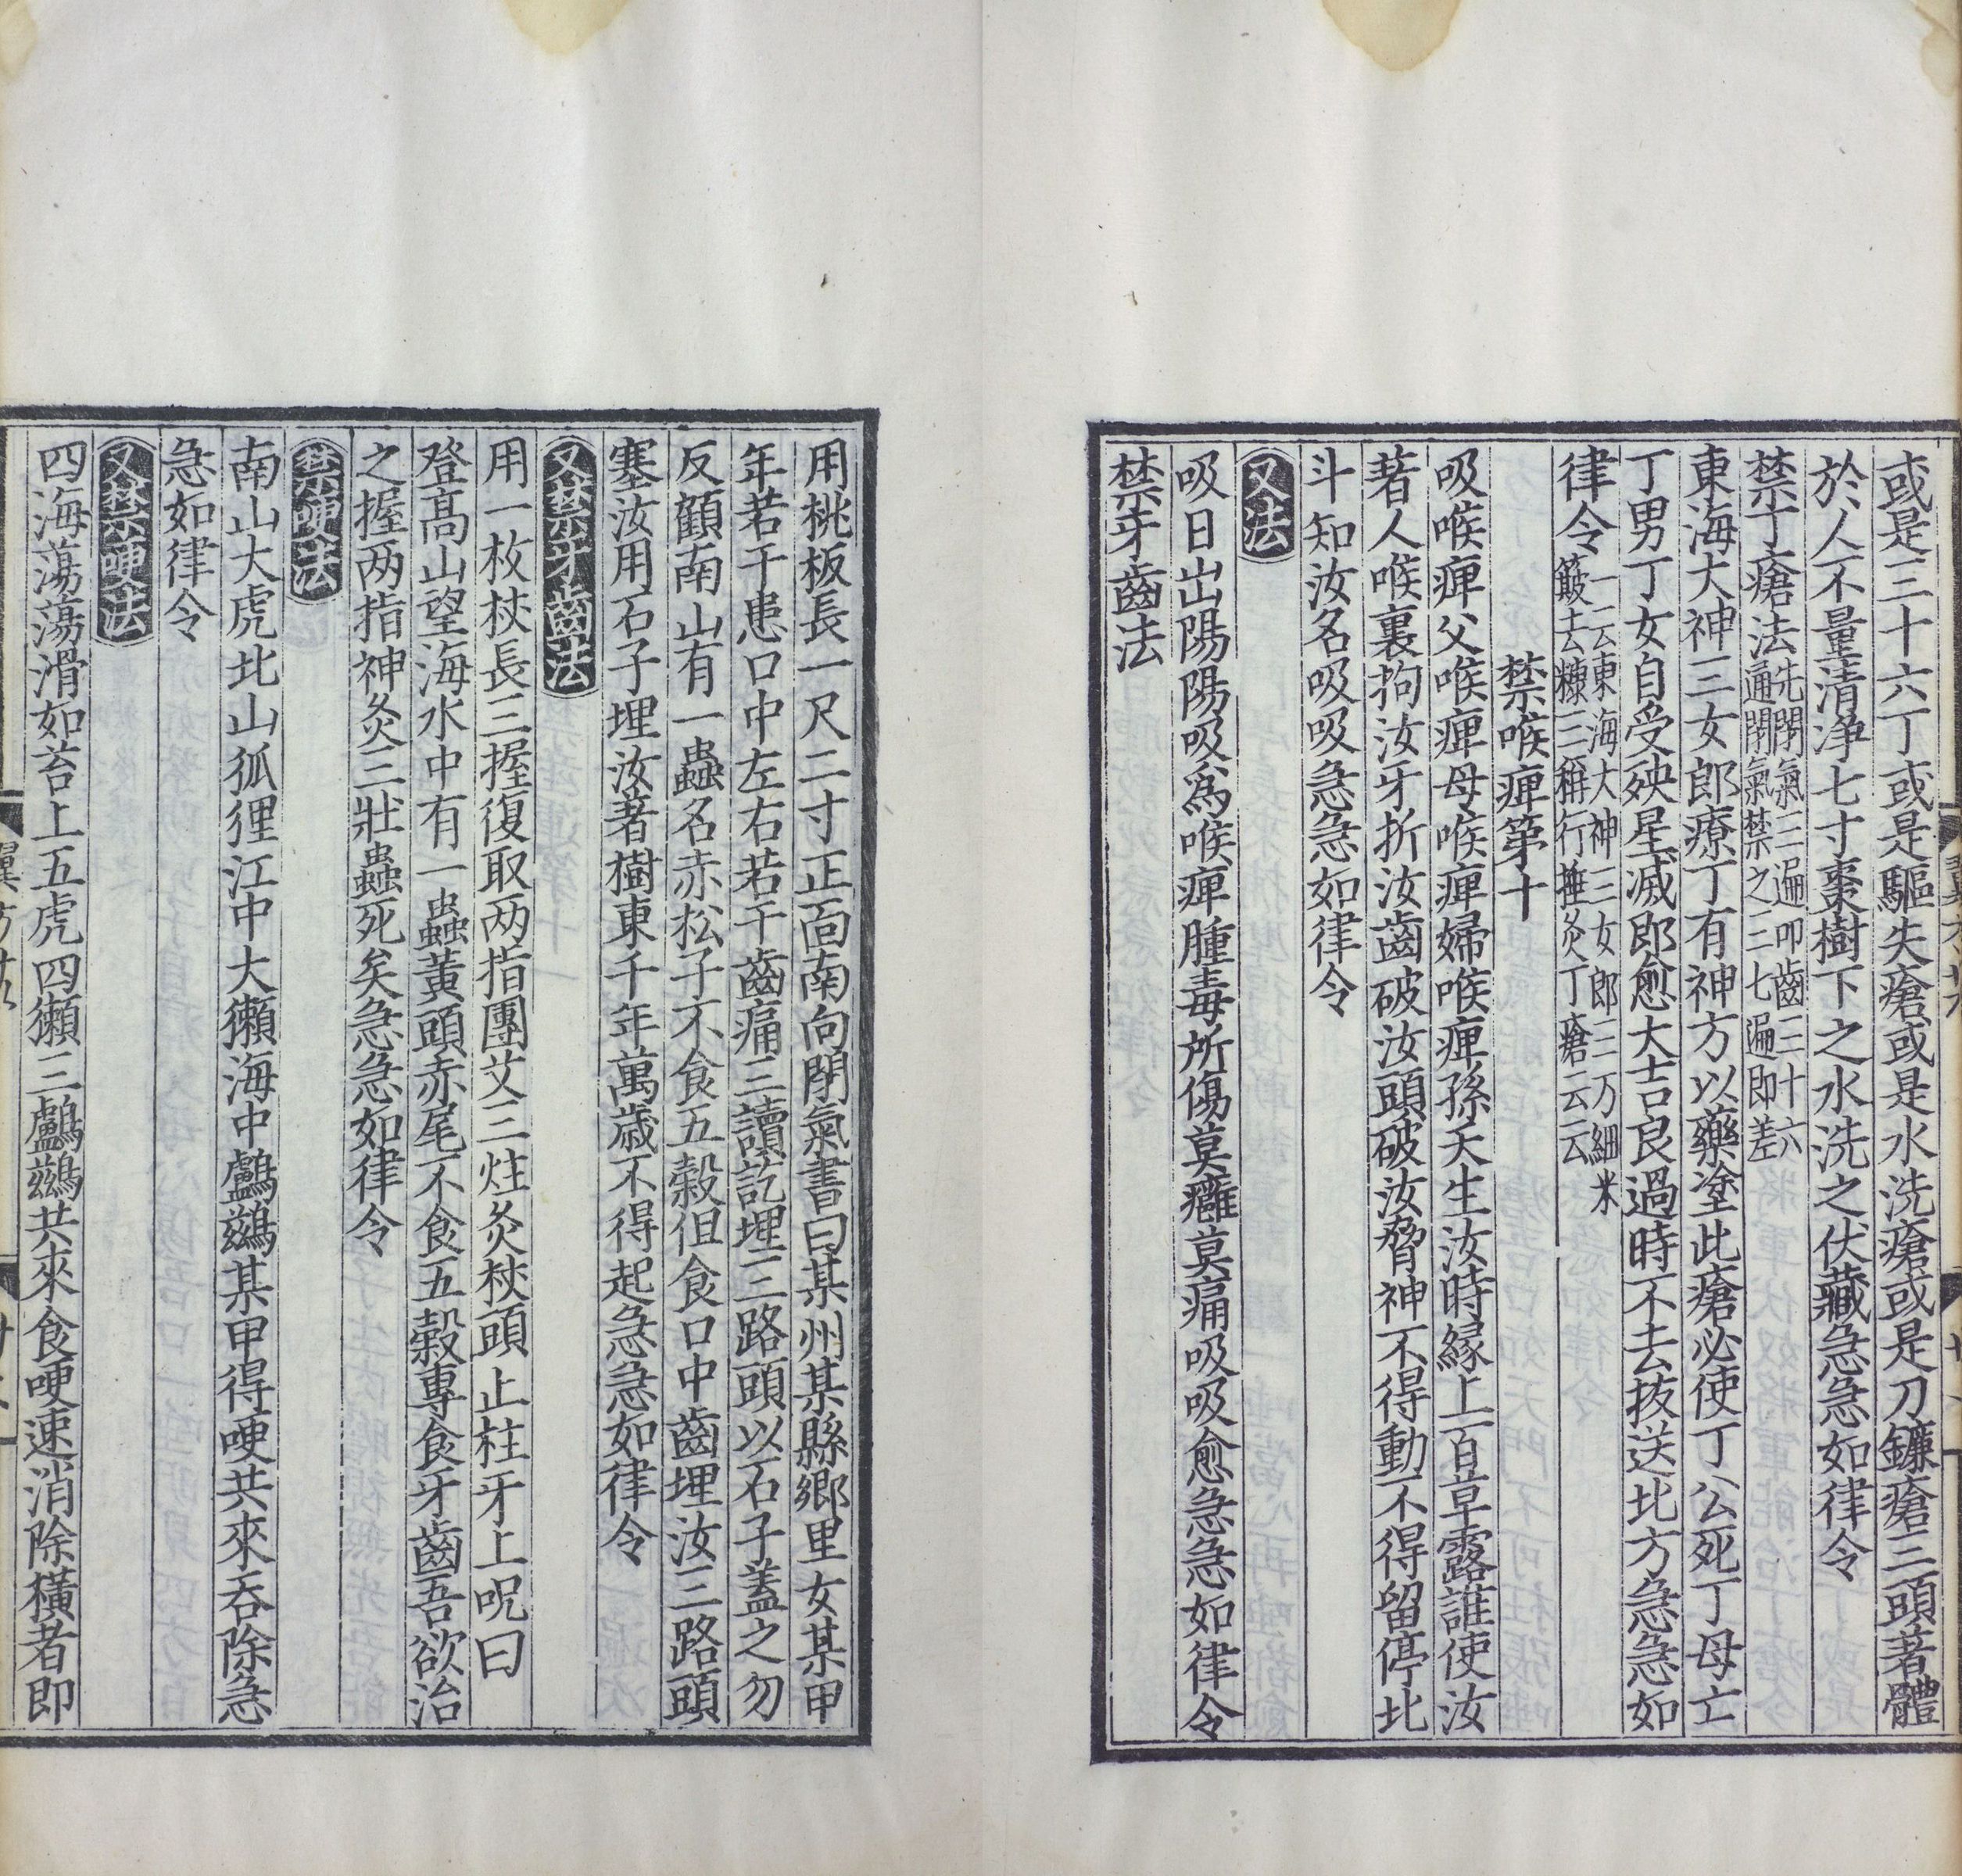 或是三十六丁或是驅失瘡或是水洗瘡或是刀鐮瘡三頭著體
於人不量清净七寸棗樹下之水洗之伏藏急急如律令
禁丁瘡法先閉氣三遍叩齒三十六
遍閉氣禁之三七遍即差
東海大神三女郎療丁有神方以藥塗此瘡必使丁公死丁母亡
丁男丁女自受殃星滅郎愈大吉良過時不去拔送北方急急如
律令一云東海大神三女郎三万細米
簸去糠三稱行搥灸丁瘡云云
禁喉痺第十
吸喉痺父喉痺母喉痺婦喉痺孫夭生汝時緣上百草露誰使汝
著人喉裏拘汝牙折汝齒破汝頭破汝脅神不得動不得留停北
斗知汝名吸吸急急如律令
又法
吸日出陽陽吸爲喉痺腫毒所傷莫癰莫痛吸吸愈急急如律令
禁牙齒法
用桃板長一尺二寸正面南向閉氣書曰某州某縣鄉里女某甲
年若干患口中左右若干齒痛三讀訖埋三路頭以石子蓋之勿
反顧南山有一蟲名赤松子不食五穀但食口中齒埋汝三路頭
塞汝用石子埋汝著樹東千年萬歲不得起急急如律令
又禁牙齒法
用一枚杖長三握復取两指團艾三炷灸杖頭止柱牙上呪曰
登高山望海水中有一蟲黃頭赤尾不食五穀專食牙齒吾欲治
之握两指神灸三壯蟲死矣急急如律令
禁哽法
南山大虎北山狐狸江中大獺海中鸕鷀某甲得哽共來吞除急
急如律令
又禁哽法
四海蕩蕩滑如苔上五虎四獺三鸕鷀共來食哽速消除橫者即